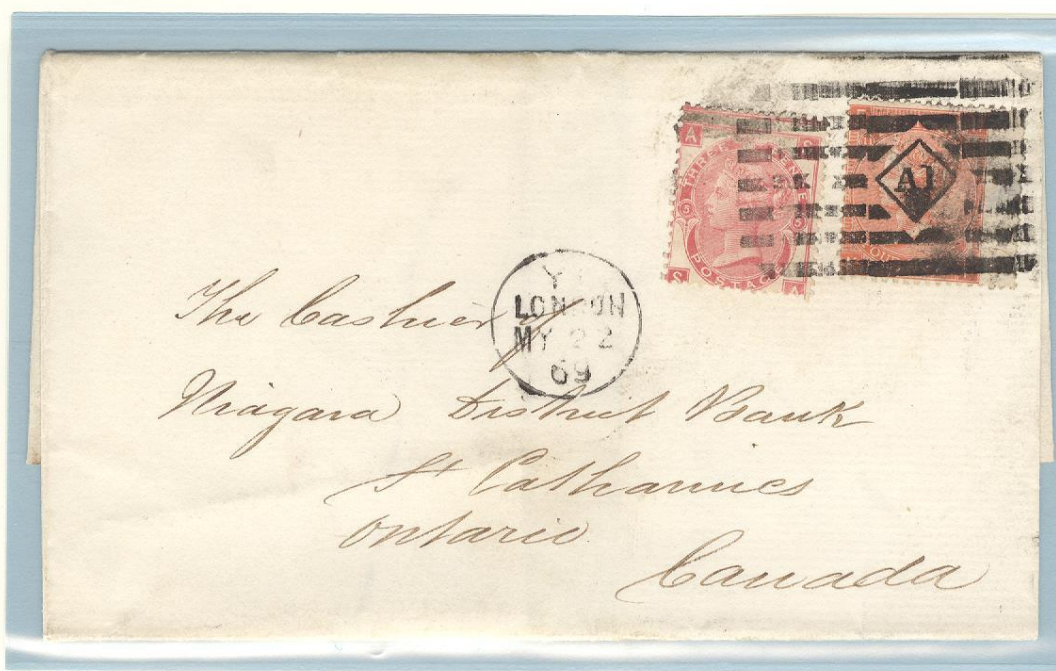 A
THREE
POSTAG
S A
AI
Y
LONDON
MY 22
69
The Cashier of
Niagara District Bank
St Catharines
Ontario
Canada